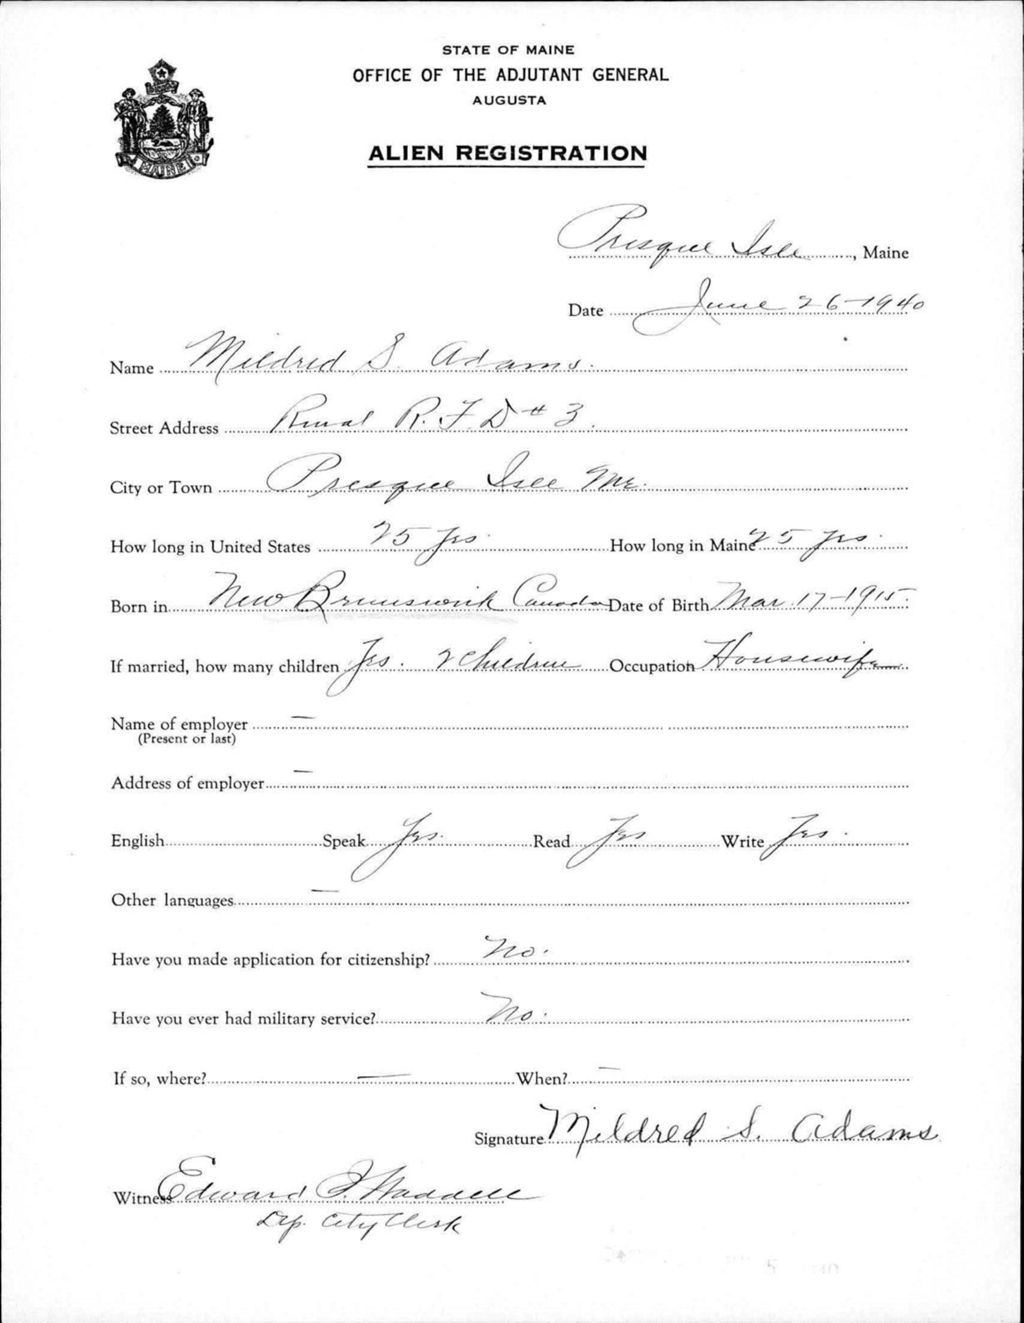 STATE OF MAINE
OFFICE OF THE ADJUTANT GENERAL
AUGUSTA
ALIEN REGISTRATION
MAINE
Presque Isle, Maine
Date June 26-1940
Name Mildred S. Adams.
Street Address Rural R.F.D # 3.
City or Town Presque Isle Me.
How long in United States 25 yrs. How long in Maine 25 yrs.
Born in New Brunswick Canada Date of Birth Mar. 17-1915.
If married, how many children Yes. 2 Children Occupation Housewife
Name of employer —
(Present or last)
Address of employer —
English Speak Yes. Read Yes Write Yes.
Other languages —
Have you made application for citizenship? No.
Have you ever had military service? No.
If so, where? — When? —
Signature Mildred S. Adams
Witness Edward F. Waddell
Dep. City Clerk